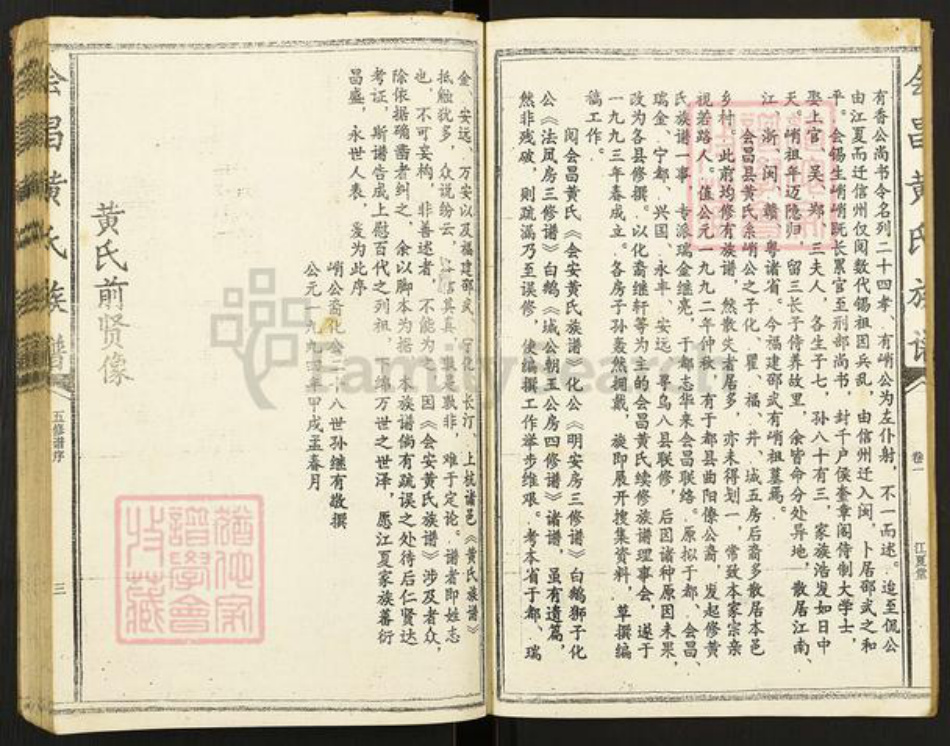 会昌黄氏族谱
卷一
江夏堂
有香公尚书令名列二十四孝.有峭公为左仆射,不一而述.迨至侃公
由江夏而迁信州仅阅数代锡祖因兵乱,由信州迁入闽,卜居邵武之和
平.会锡生峭峭既长累官至刑部尚书,封千户侯奎章阁侍制大学士,
娶上官、吴、郑、三夫人,各生子七,孙八十有三,家族浩发如日中
天。峭祖年迈隐归,留三长子侍养故里,余皆命分处异地,散居江南、
江、浙、闽、赣、粤诸省。今福建邵武有峭祖墓焉。
会昌县黄氏系峭公之子化、瞿、福、井、城五房后裔多散居本邑
乡村。此前均修有族谱,然散失者居多,亦未得划一,常致本家宗亲
视若路人。值公元一九九二年仲秋,有于都县曲阳僚公裔,发起修黄
氏族谱一事,专派瑞金继亮,于都志华来会昌联络。原拟于都、会昌、
瑞金、宁都、兴国、永丰、安远、寻乌八县联修,后因诸种原因未果,
改为各县修撰。以化裔继轩等为主的会昌黄氏续修族谱理事会,遂于
一九九三年春成立。各房子孙轰然拥戴,旋即展开搜集资料,草撰编
稿工作。
阅会昌黄氏《会安黄氏族谱》化公《明安房三修谱》白鹅狮子化
公《法凤房三修谱》白鹅《城公朝王公房四修谱》诸谱,虽有遗篇,
然非残破,则疏漏乃至误修,使编撰工作举步维艰。考本省于都、瑞
金、安远、万安以及福建邵武、宁化、长汀、上杭诸邑《黄氏族谱》
抵触犹多,众说纷云,其真.孰是孰非,难于定论。谱者即姓志
也,不可妄构,非善述者,不能为之。因《会安黄氏族谱》涉及者众,
除依据确凿者纠之,余以脚本为据。本族谱倘有疏误之处待后仁贤达
考证,斯谱告成上慰百代之列祖,下绵万世之世泽,愿江夏家族蕃衍
昌盛,永世人表,爰为此序
峭公裔化公二十八世孙继有敬撰
公元一九九四年甲戌孟春月
黄氏前贤像
会昌黄氏族谱
五修谱序
三
FamilySearch